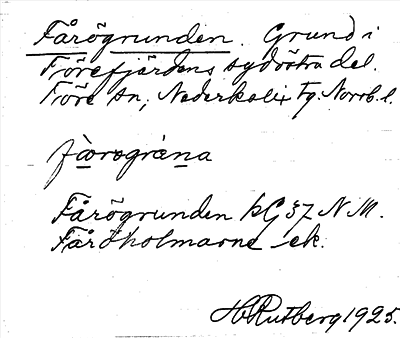 Fårögrunden. Grund i
Törefjärdens sydöstra del.
Töre sn, Nederkalix tg. Norrb. l.
fårogrena
Fårögrunden kG 37 N M.
Fåröholmarne ek.
H Rutberg 1925.